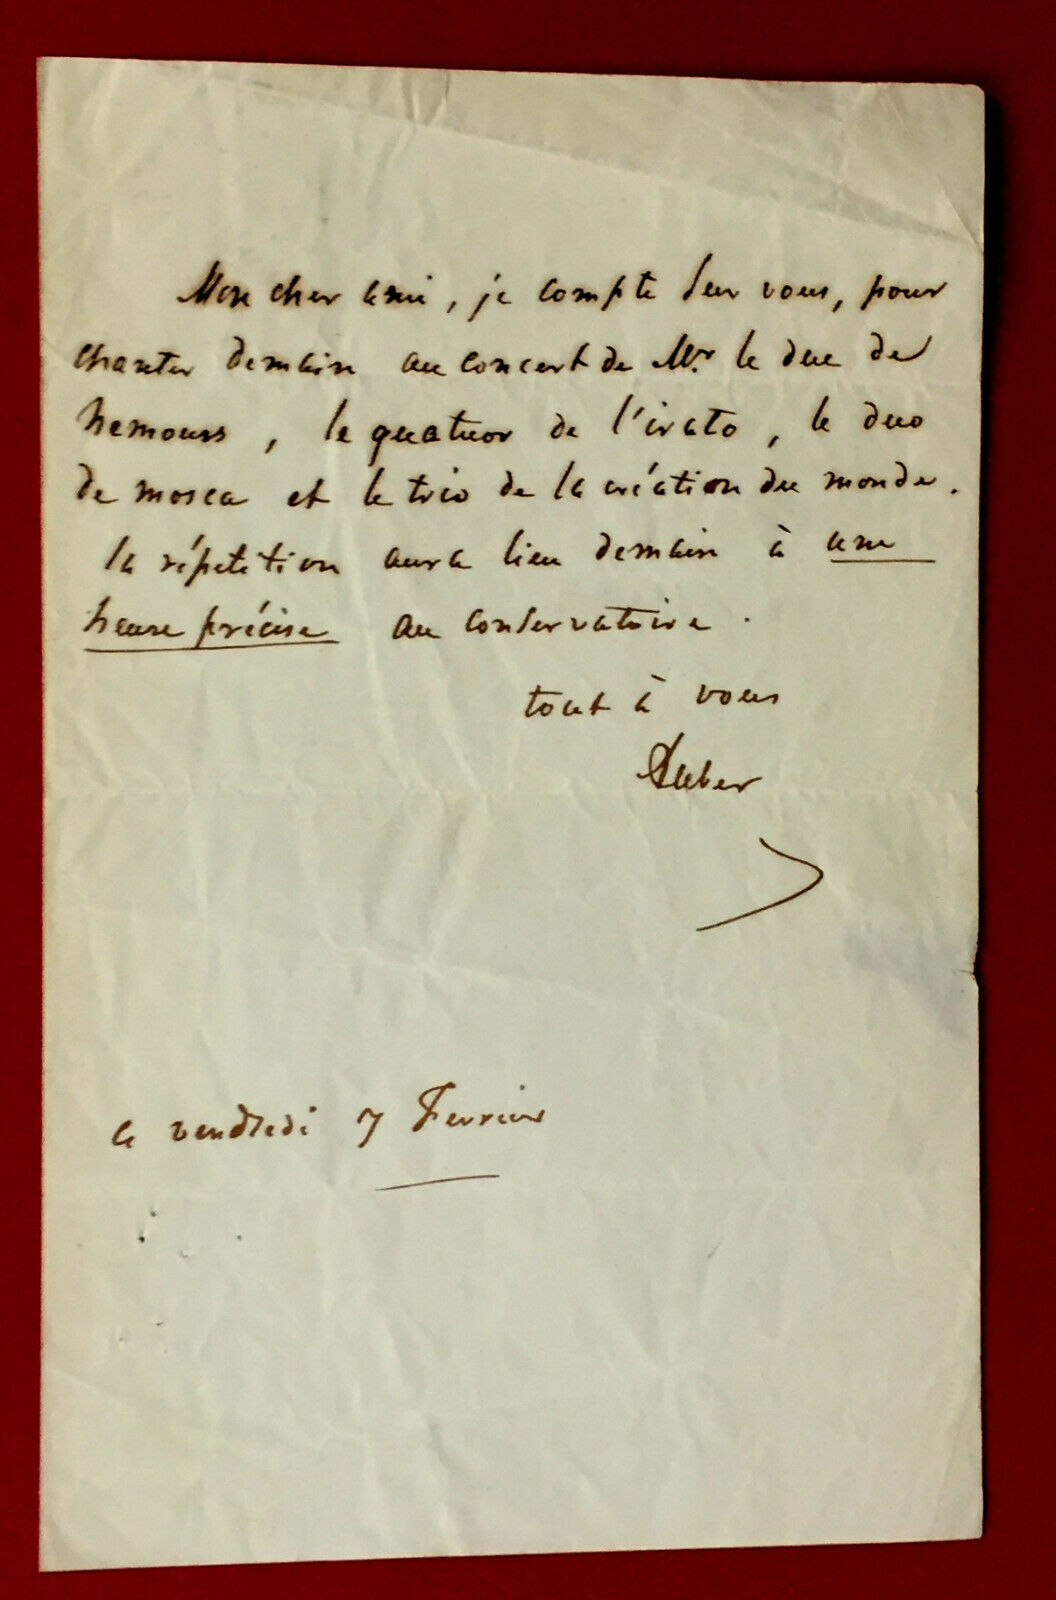 Mon cher ami, je compte sur vous, pour
chanter demain au concert de Mr. le duc de
nemours, le quatuor de l'irato, le duo
de mosca et le trio de la création du monde.
la répétition aura lieu demain à une
heure précise au conservatoire.
tout à vous
Auber
ce vendredi 7 Fevrier